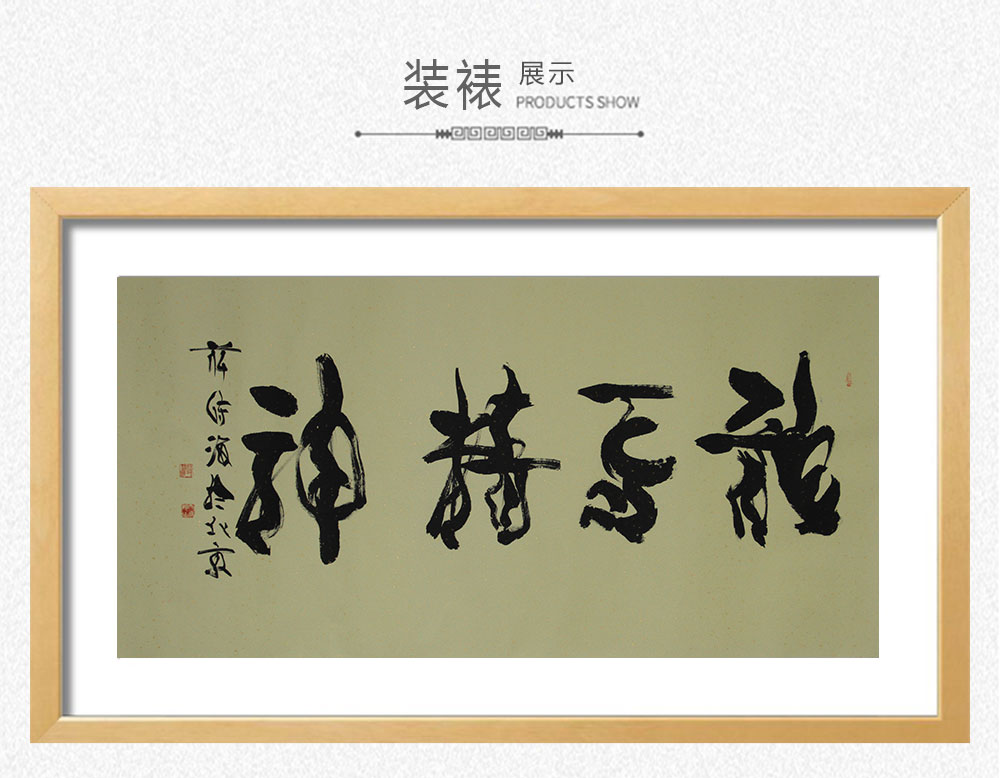 装裱 展示
PRODUCTS SHOW
龍馬精神
於北京